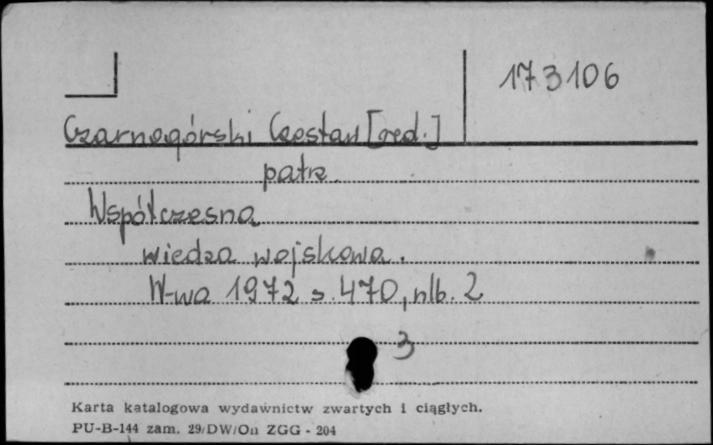 173106
Czarnogórski Czesław [red.]
patrz
Współczesna
wiedza wojskowa.
W-wa 1972 s. 470, nlb. 2
3
Karta katalogowa wydawnictw zwartych i ciągłych.
PU-B-144 zam. 29/DW/On ZGG - 204